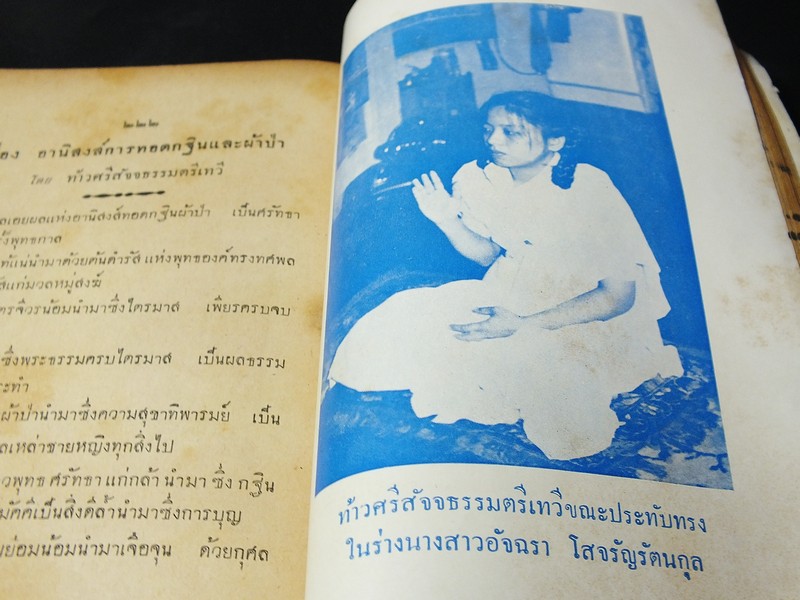 ๒๒๒
อานิสงส์การทอดกฐินและผ้าป่า
โดย ท้าวศรีสัจจธรรมตรีเทวี
ผลแห่งอานิสงส์ทอดกฐินผ้าป่า เป็นศรัทธา
พุทธกาล
นำมาด้วยต้นดำรัส แห่งพุทธองค์ทรงทศพล
แก่มวลหมู่สงฆ์
น้อมนำมาซึ่งไตรมาส เพียรครบจบ
ซึ่งพระธรรมครบไตรมาส เป็นผลธรรม
ผ้าป่านำมาซึ่งความสุขาทิพารมย์ เป็น
เหล่าชายหญิงทุกสิ่งไป
พุทธ ศรัทธา แก่กล้า นำมา ซึ่ง กฐิน
เป็นสิ่งดีล้ำนำมาซึ่งการบุญ
ย่อมน้อมนำมาเจือจุน ด้วยกุศล
ท้าวศรีสัจจธรรมตรีเทวีขณะประทับทรง
ในร่างนางสาวอัจฉรา โสจรัญรัตนกุล